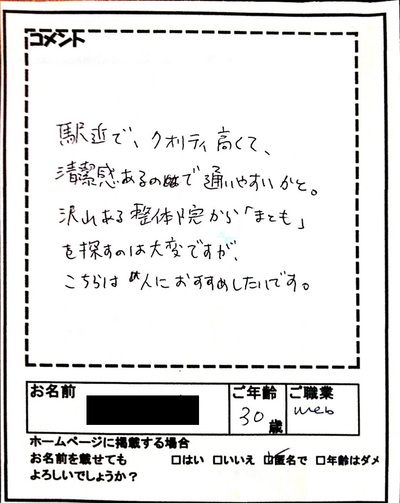 コメント
駅近で、クオリティ高くて、
清潔感あるので通いやすいかと。
沢山ある整体院から「まとも」
を探すのは大変ですが、
こちらは人におすすめしたいです。
お名前
ご年齢
ご職業
30歳
web
ホームページに掲載する場合
お名前を載せても □はい □いいえ ☑匿名で □年齢はダメ
よろしいでしょうか?